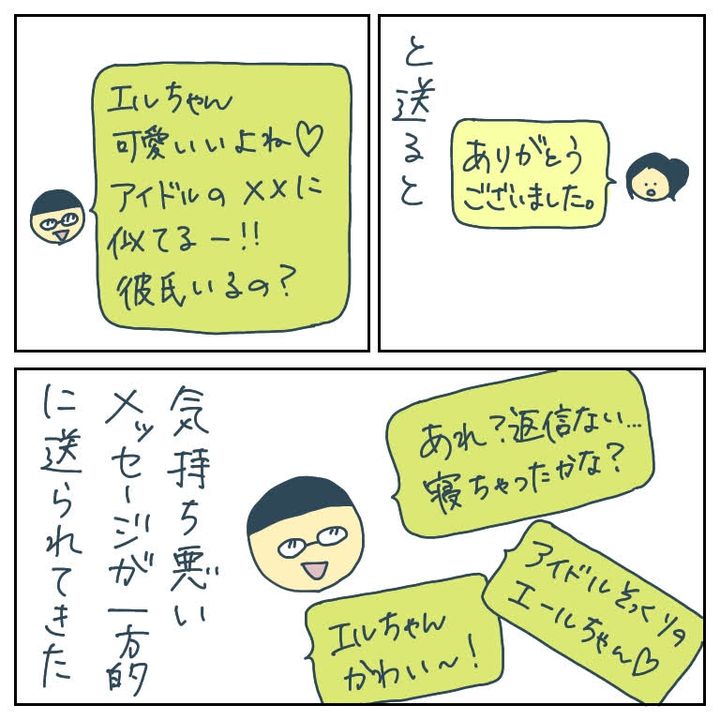 と送ると
ありがとう
ございました。
エルちゃん
可愛いいよね♡
アイドルの××に
似てるー!!
彼氏いるの?
あれ?返信ない…
寝ちゃったかな?
アイドルそっくりの
エールちゃん♡
エルちゃん
かわい~!
気持ち悪い
メッセージが一方的
に送られてきた